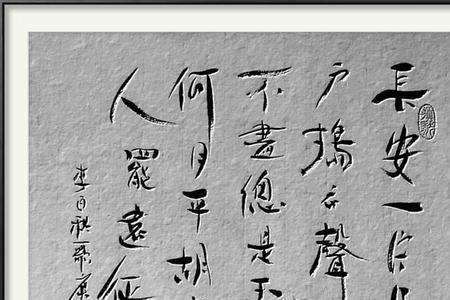 長安一片月
戶搗衣聲
不盡總是玉
何日平胡
人罷遠征
李白秋歌